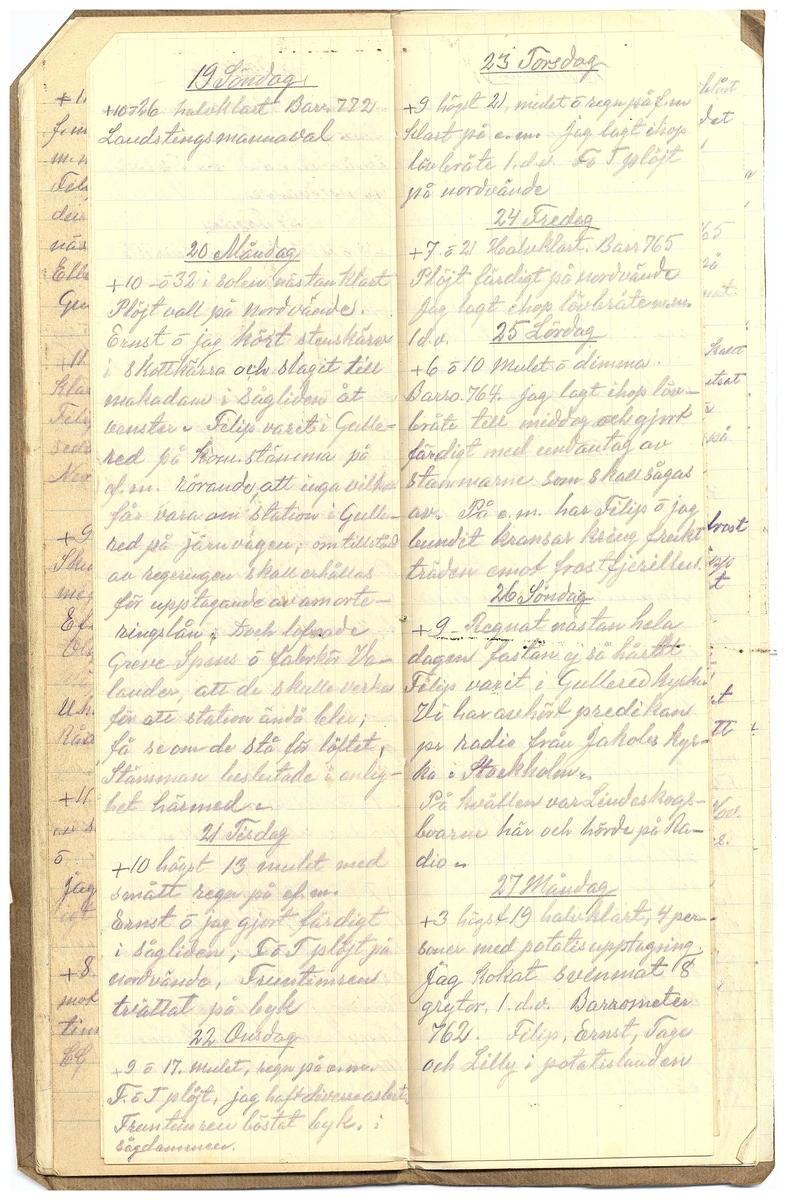 19 Söndag
+10 ö 26 halvklart Barr. 772
Landstingsmannaval
20 Måndag
+10 - ö 32 i solen nästan klart
Plöjt vall på nordvände.
Ernst ö jag kört stenskärv
i skottkärra och slaget till
makadam i Sågliden åt
venster. Filip varit i Gulle-
red på kom.stämma på
ef.m. rörande, att inga villkor
får vara om station i Gulle-
red på järnvägen, om tillstånd
av regeringen skall erhållas
för upptagande av amorte-
ringslån. Doch lofvade
Greve Spens ö fabrikör Va-
lander, att de skulle verka
för att station ändå blev;
få se om de stå för löftet,
Stämman beslutade i enlig-
het härmed.
21 Tisdag
+10 högst 13 mulet med
smått regn på ef.m.
Ernst ö jag gjort färdigt
i sågliden, F ö T plöjt på
nordvände, Fruntimren
tvättat på byk
22 Onsdag
+9 ö 17. mulet, regn på e.m.
F. ö T plöjt, jag haft diverse arbete
Fruntimren böstat byk. i
sågdammen.
23 Torsdag
+9 högst 21, mulet ö regn på f.m
klart på e.m. jag lagt ihop
lövbråte 1.d.v. F ö T plöjt
på nordvände
24 Fredag
+7 ö 21 Halvklart. Barr 765
Plöjt färdigt på nordvände
Jag lagt ihop lövbråte m.m.
1 d.v.
25 Lördag
+6 ö 10 Mulet ö dimma.
Barro. 764. jag lagt ihop löv-
bråte till middag och gjort
färdigt med undantag av
stammarne som skall sågas
av. På e.m. har Filip ö jag
bundit kransar kring frukt
träden emot frostfjerillen.
26 Söndag
+9 - Regnat nästan hela
dagen fastän ej så hårdt
Filip varit i Gullered kyrka
Vi har avhört predikan
pr radio från Jakobs kyr-
ka i Stockholm.
På kvällen var Lindeskogs-
boarne här och hörde på Ra-
dio.
27 Måndag
+3 högst 19 halvklart, 4 per-
soner med potatisupptagning.
Jag kokat svinmat 8
grytor. 1.d.v. Barrometer
762. Filip, Ernst, Tage
och Lilly i potatislanden